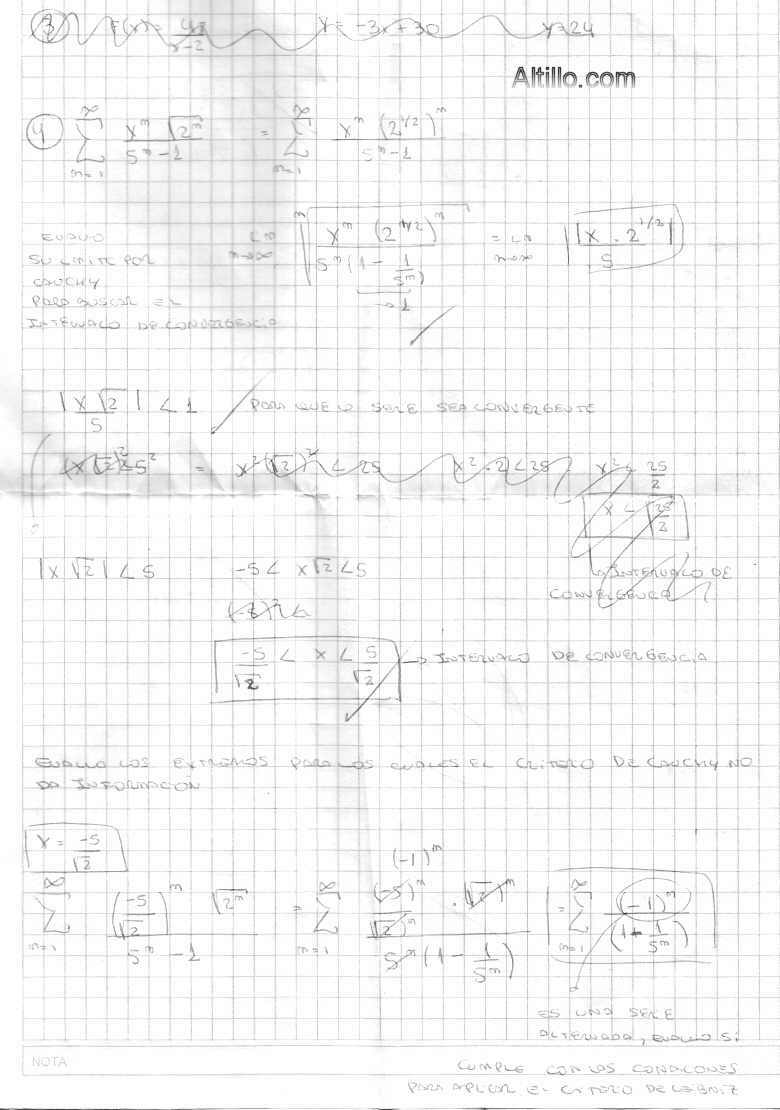 ③ F(x) = 4x / x-2   y = -3x+30   y=24
Altillo.com
④ ∞ Σ n=1 xⁿ √2ⁿ / 5ⁿ-1 = ∞ Σ n=1 xⁿ (2^1/2)ⁿ / 5ⁿ-1
EVALUO
SU LIMITE POR
CAUCHY
PARA BUSCAR EL
INTERVALO DE CONVERGENCIA
Lm n→∞ ⁿ√ xⁿ (2^1/2)ⁿ / 5ⁿ(1 - 1/5ⁿ) →1 = Lm n→∞ |x . 2^1/2| / 5
|x √2 / 5| < 1 PARA QUE LA SERIE SEA CONVERGENTE
(x √2)² < 5² = x² (√2)² < 25   x² . 2 < 25   x² < 25/2
x < √25/2
|x √2| < 5   -5 < x √2 < 5
↳ INTERVALO DE
CONVERGENCIA
-5/√2 < x < 5/√2 → INTERVALO DE CONVERGENCIA
EVALUO LOS EXTREMOS PARA LOS CUALES EL CRITERIO DE CAUCHY NO
DA INFORMACIÓN
x = -5/√2
∞ Σ n=1 (-5/√2)ⁿ √2ⁿ / 5ⁿ - 1 = ∞ Σ n=1 (-1)ⁿ (-5)ⁿ/(√2)ⁿ . (√2)ⁿ / 5ⁿ (1 - 1/5ⁿ) = ∞ Σ n=1 (-1)ⁿ / (1 - 1/5ⁿ)
ES UNA SERIE
ALTERNADA, EVALUO SI
NOTA
CUMPLE CON LAS CONDICIONES
PARA APLICAR EL CRITERIO DE LEIBNIZ